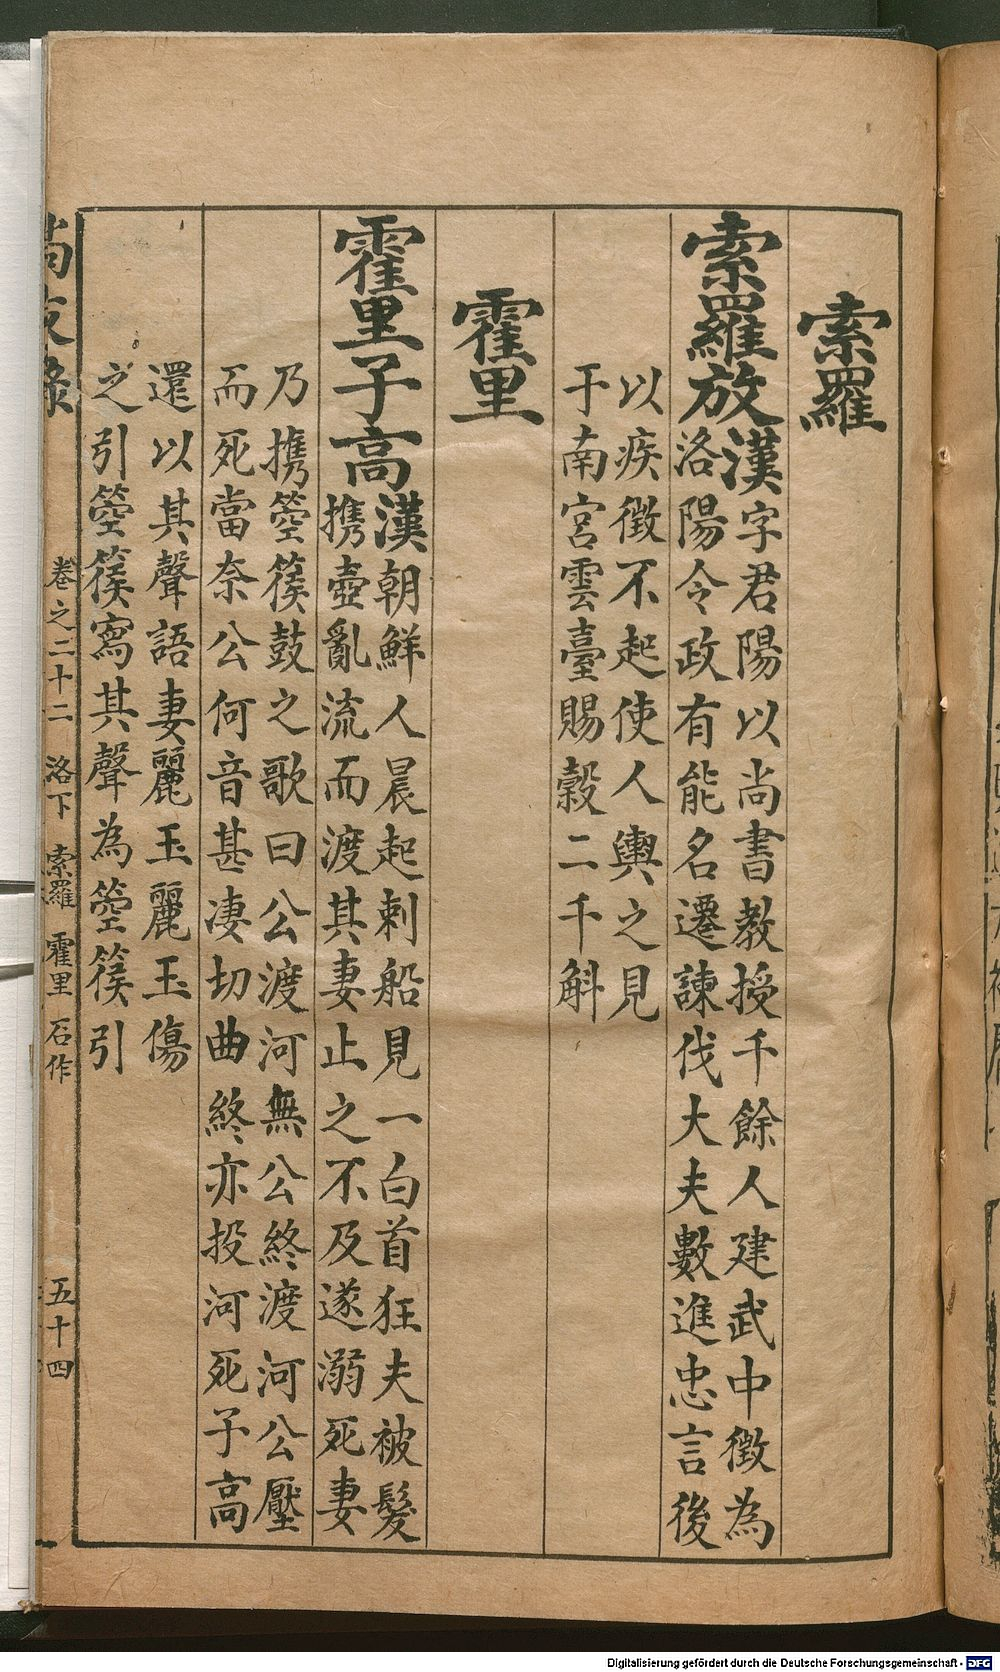 索羅
索羅放
漢字君陽以尚書教授千餘人建武中徵為
洛陽令政有能名遷諫伐大夫數進忠言後
以疾徵不起使人輿之見
于南宮雲臺賜穀二千斛
霍里
霍里子高
漢朝鮮人晨起刺船見一白首狂夫被髮
携壺亂流而渡其妻止之不及遂溺死妻
乃携箜篌鼓之歌曰公渡河無公終渡河公壓
而死當奈公何音甚凄切曲終亦投河死子高
還以其聲語妻麗玉麗玉傷
之引箜篌寫其聲為箜篌引
尚友錄
卷之二十二 洛下 索羅 霍里 石作
五十四
Digitalisierung gefördert durch die Deutsche Forschungsgemeinschaft - DFG